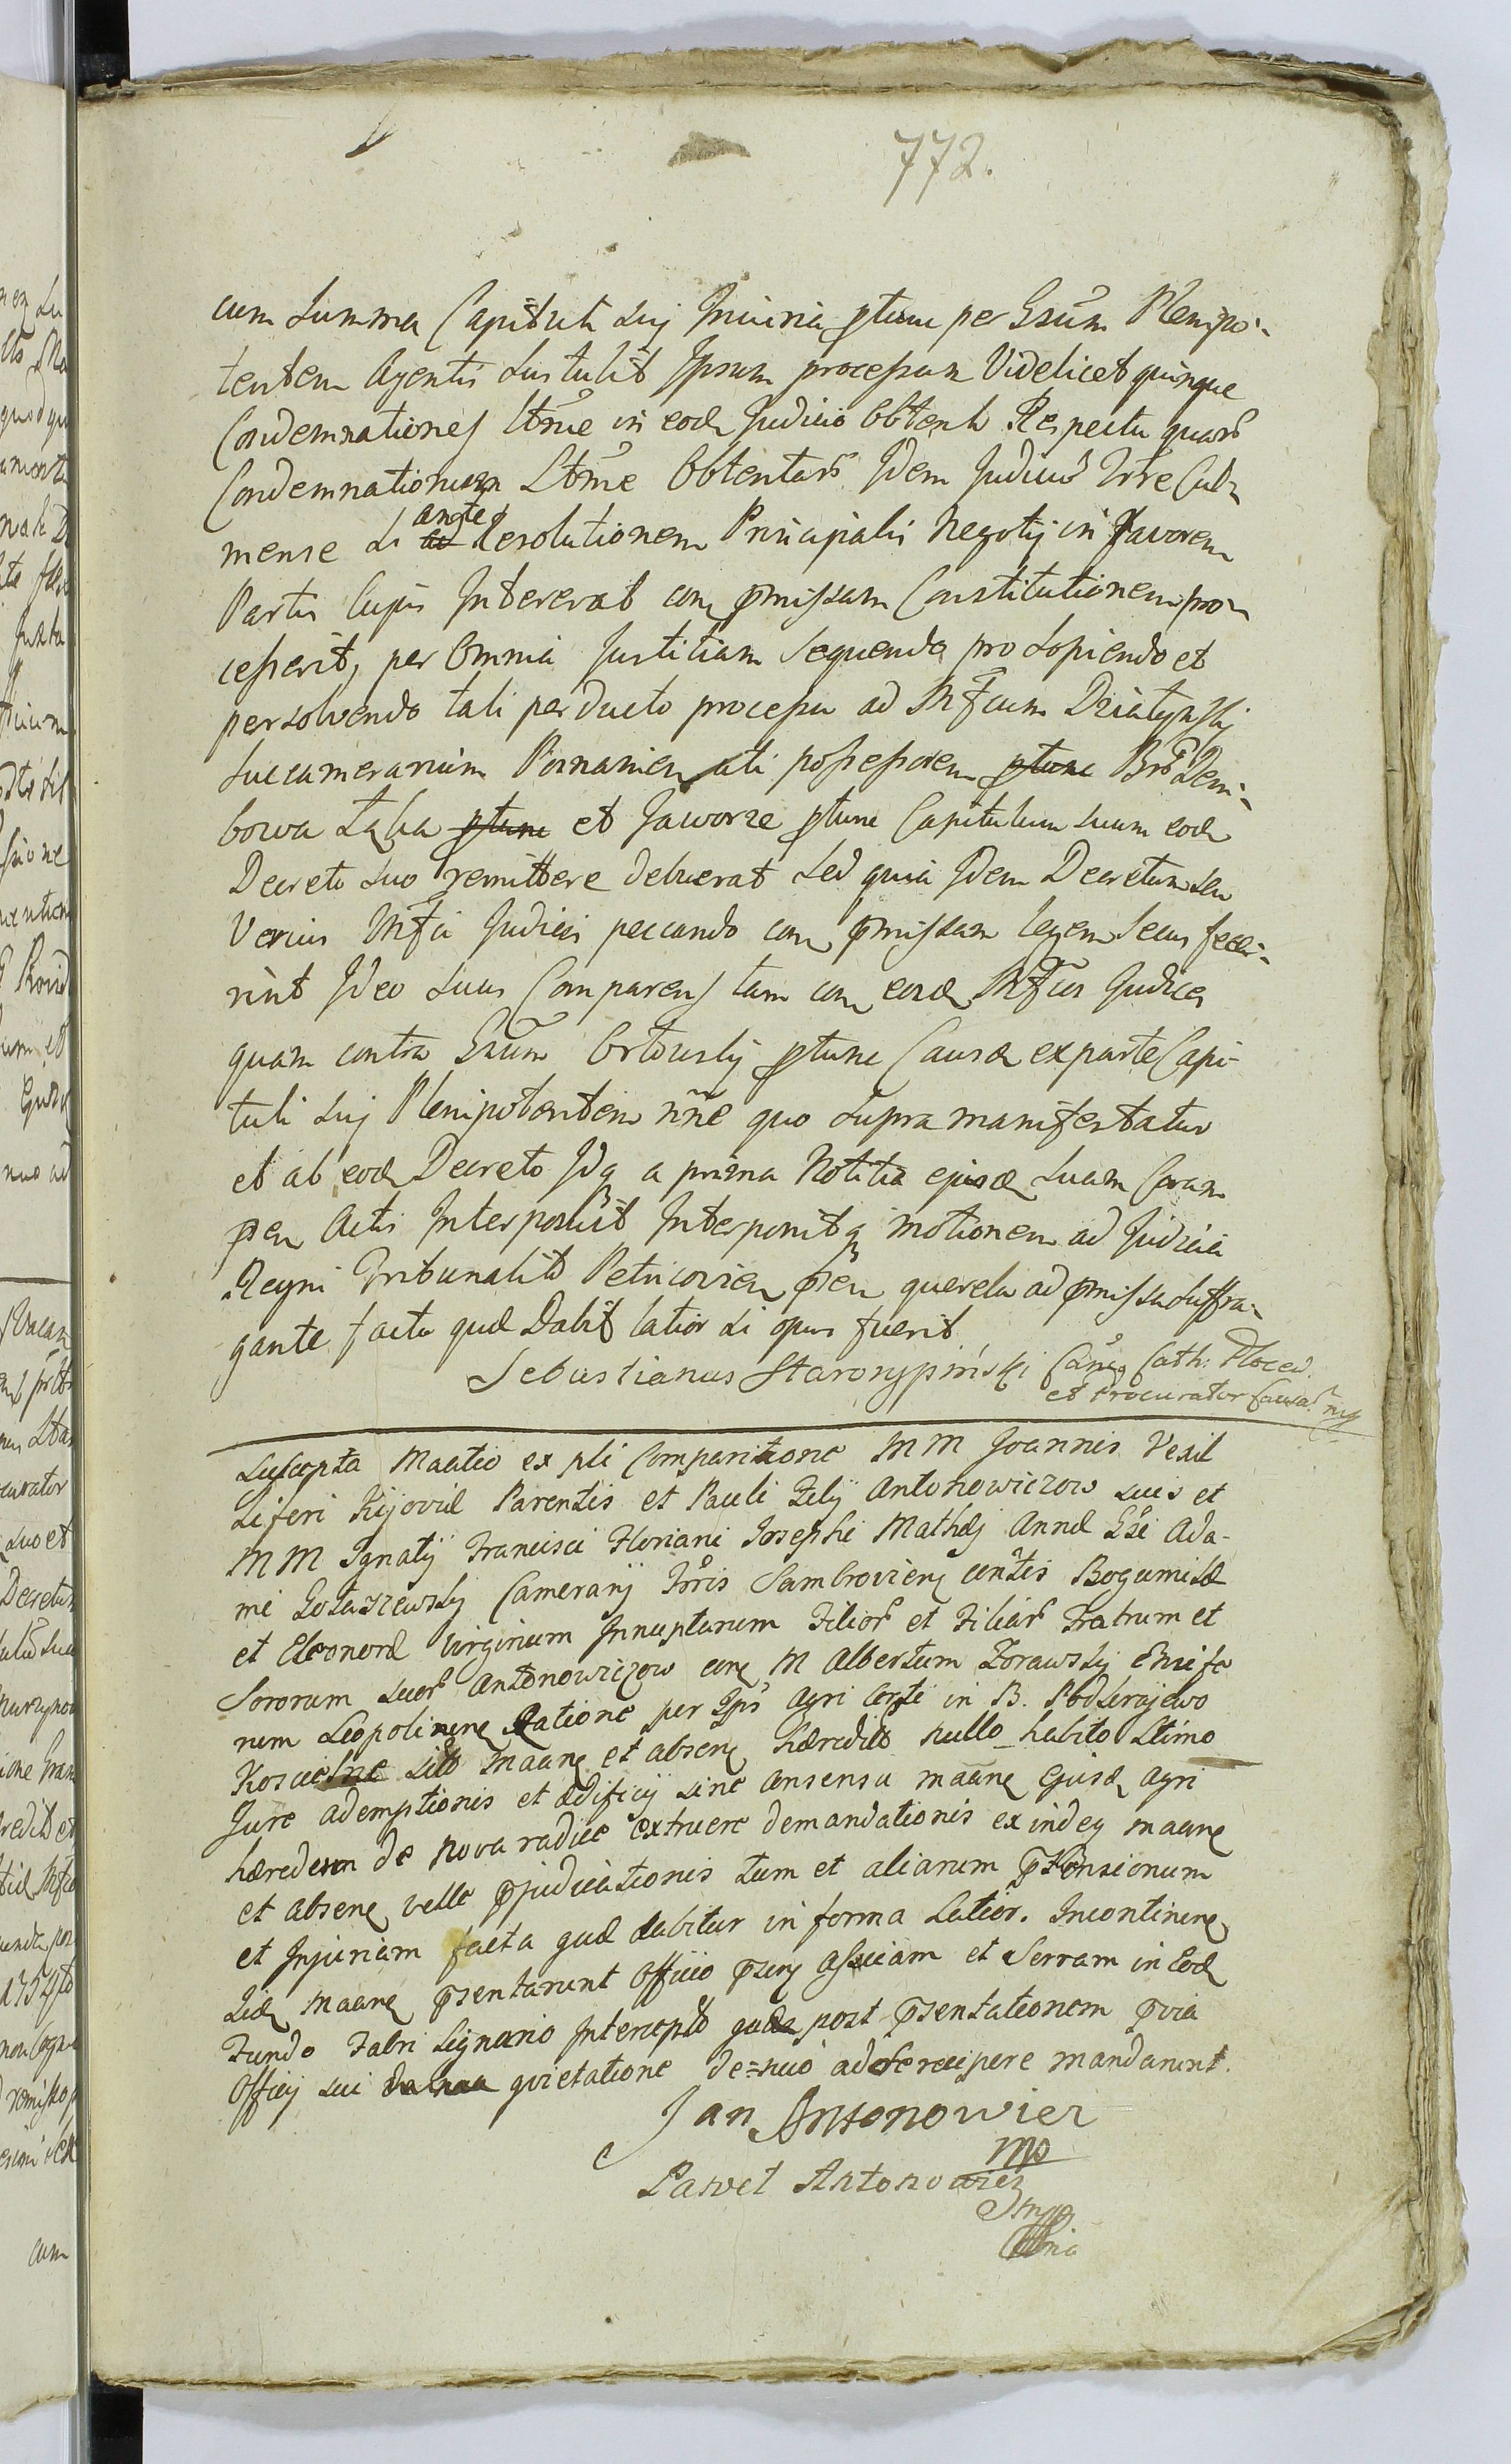 772.
cum Summa Capituli Sui Iniuria ptunc per Gsum Plenipo-
tentem Agentis Sustulit Ipsum processum Videlicet quinque
Condemnationes Ltme in eod Judicio Obtent Respectu quar
Condemnationum Ltme Obtentar Idem Judiciu Trre Cul
mense Si ante Resolutionem Principalis Negotij in Favorem
Partis Cujus Intererat con pmissam Constitutionem pro
cesserit, per Omnia Justitiam Sequendo pro Sopiendo et
persolvendo tali perducto processu ad Mfcum Dziatynskj
Succamerarium Posnanien uti possessorem ptunc Bro Dem-
bowa Łąka ptunc et Jaworze ptunc Capitulum suum eod
Decreto suo remittere debuerat Sed quia Idem Decretum seu
Verius Mfci Judices peccando con pmissam legem Secus fece-
rint Ideo Suus Comparens tam con eosd Mfcos Judices
quam contra Gsum Ortowskj ptunc Causæ ex parte Capi-
tuli Suj Plenipotentem nne quo Supra manifestatur
et ab eod Decreto Idq a prima Notitia ejusd Suam Coram
psen Actis Interposuit Interponitq motionem ad Judicia
Regni Tribunalit Petricovien psen querela ad pmissa Suffra-
gante facta quæ Dabit latior Si opus fuerit
Sebastianus Starorypiński Canq Cath: Plocen.
et Procurator Causar mp
Suscepta Maatio ex pli Comparitione MM Joannis Vexil
Liferi Kijoviæ Parentis et Pauli Filij Antonowiczow suis et
MM Ignatij Francisci Floriani Josephi Mathæj Annæ Gsi Ada-
mi Gołaszewskj Camerarij Trris Sambrovienq cntis Bogumilæ
et Eleonoræ Virginum Innuptarum Filior et Filiar Fratrum et
Sororum suor Antonowiczow conq M Albertum Zorawskj Ensife
rum Leopolinenq Ratione per Ips Agri Certi in B. Podserajewo
Koscielne sito maanq et absenq hæredit nullo habito Ltimo
Jure ademptionis et ædificij sine consensu maanq Ejusd agri
hæredem de nova radice extruere demandationis exindeq maanq
et absenq velle pjudicationis tum et aliarum ptensionum
et Injuriam facta quæ dabitur in forma Latior. Incontinenq
Iid maanq psentarunt Officio psenq Asciam et Serram in Eod
Fundo Fabri Lignario Intercepto quæ post psentationem pvia
Officij sui quietatione de=nuo ad se recipere mandarunt.
Jan Antonowicz
mp
Paweł Antonowicz
mp